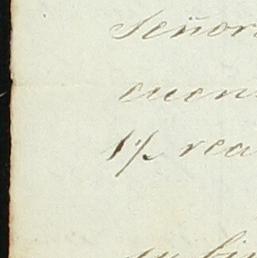 Señor
cuen
1½ rea